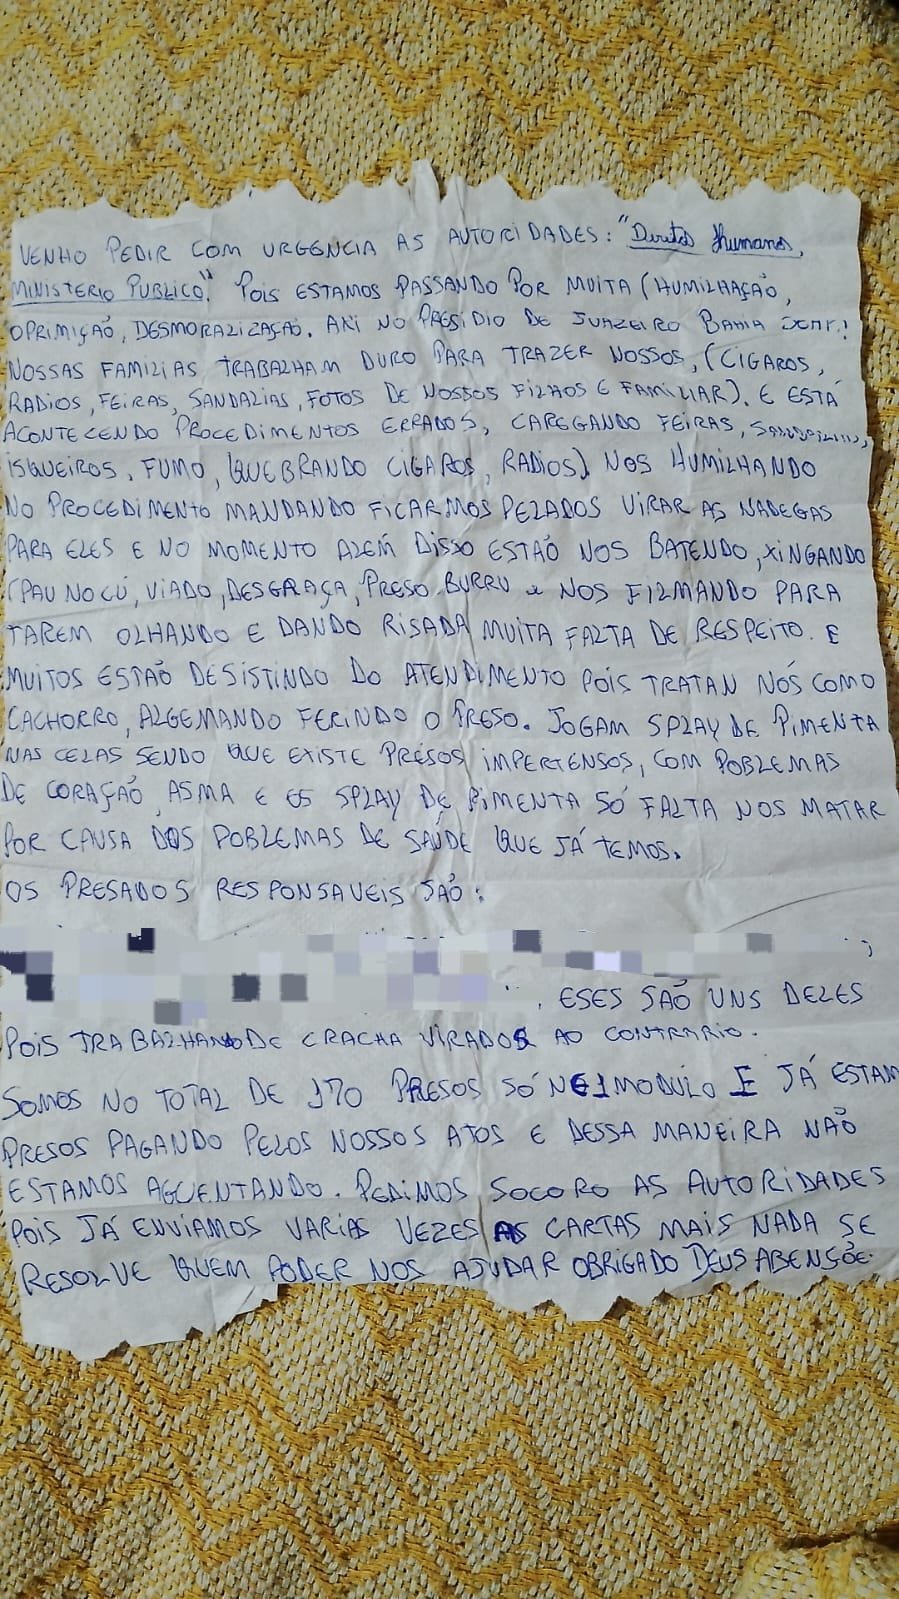 VENHO PEDIR COM URGENCIA AS AUTORIDADES: "Direitos Humanos,
MINISTERIO PUBLICO". POIS ESTAMOS PASSANDO POR MUITA (HUMILHAÇÃO,
OPRIMIÇÃO, DESMORALIZAÇÃO. AKI NO PRESIDIO DE JUAZEIRO BAHIA
NOSSAS FAMILIAS TRABALHAM DURO PARA TRAZER NOSSOS, (CIGAROS,
RADIOS, FEIRAS, SANDALIAS, FOTOS DE NOSSOS FILHOS E FAMILIAR). E ESTÁ
ACONTECENDO PROCEDIMENTOS ERRADOS, CAREGANDO FEIRAS,
ISQUEIROS, FUMO, QUEBRANDO CIGAROS, RADIOS) NOS HUMILHANDO
NO PROCEDIMENTO MANDANDO FICARMOS PELADOS VIRAR AS NADEGAS
PARA ELES E NO MOMENTO ALÉM DISSO ESTÃO NOS BATENDO, XINGANDO
(PAU NO CÚ, VIADO, DESGRAÇA, PRESO BURRO e NOS FILMANDO PARA
TAREM OLHANDO E DANDO RISADA MUITA FALTA DE RESPEITO. E
MUITOS ESTÃO DESISTINDO DO ATENDIMENTO POIS TRATAN NÓS COMO
CACHORRO, ALGEMANDO FERINDO O PRESO. JOGAM SPLAY DE PIMENTA
NAS CELAS SENDO QUE EXISTE PRESOS IMPERTENSOS, COM POBLEMAS
DE CORAÇÃO, ASMA E OS SPLAY DE PIMENTA SÓ FALTA NOS MATAR
POR CAUSA DOS POBLEMAS DE SAÚDE QUE JÁ TEMOS.
OS PRESADOS RESPONSAVEIS SAÕ:
, ESES SAÕ UNS DELES
POIS TRABALHAN DE CRACHA VIRADOS AO CONTRARIO.
SOMOS NO TOTAL DE 170 PRESOS SÓ NE1MODULO E JÁ ESTAM
PRESOS PAGANDO PELOS NOSSOS ATOS E DESSA MANEIRA NÃO
ESTAMOS AGUENTANDO. PEDIMOS SOCORO AS AUTORIDADES
POIS JÁ ENVIAMOS VARIAS VEZES AS CARTAS MAIS NADA SE
RESOLVE QUEM PODER NOS AJUDAR OBRIGADO DEUS ABENSÕE.